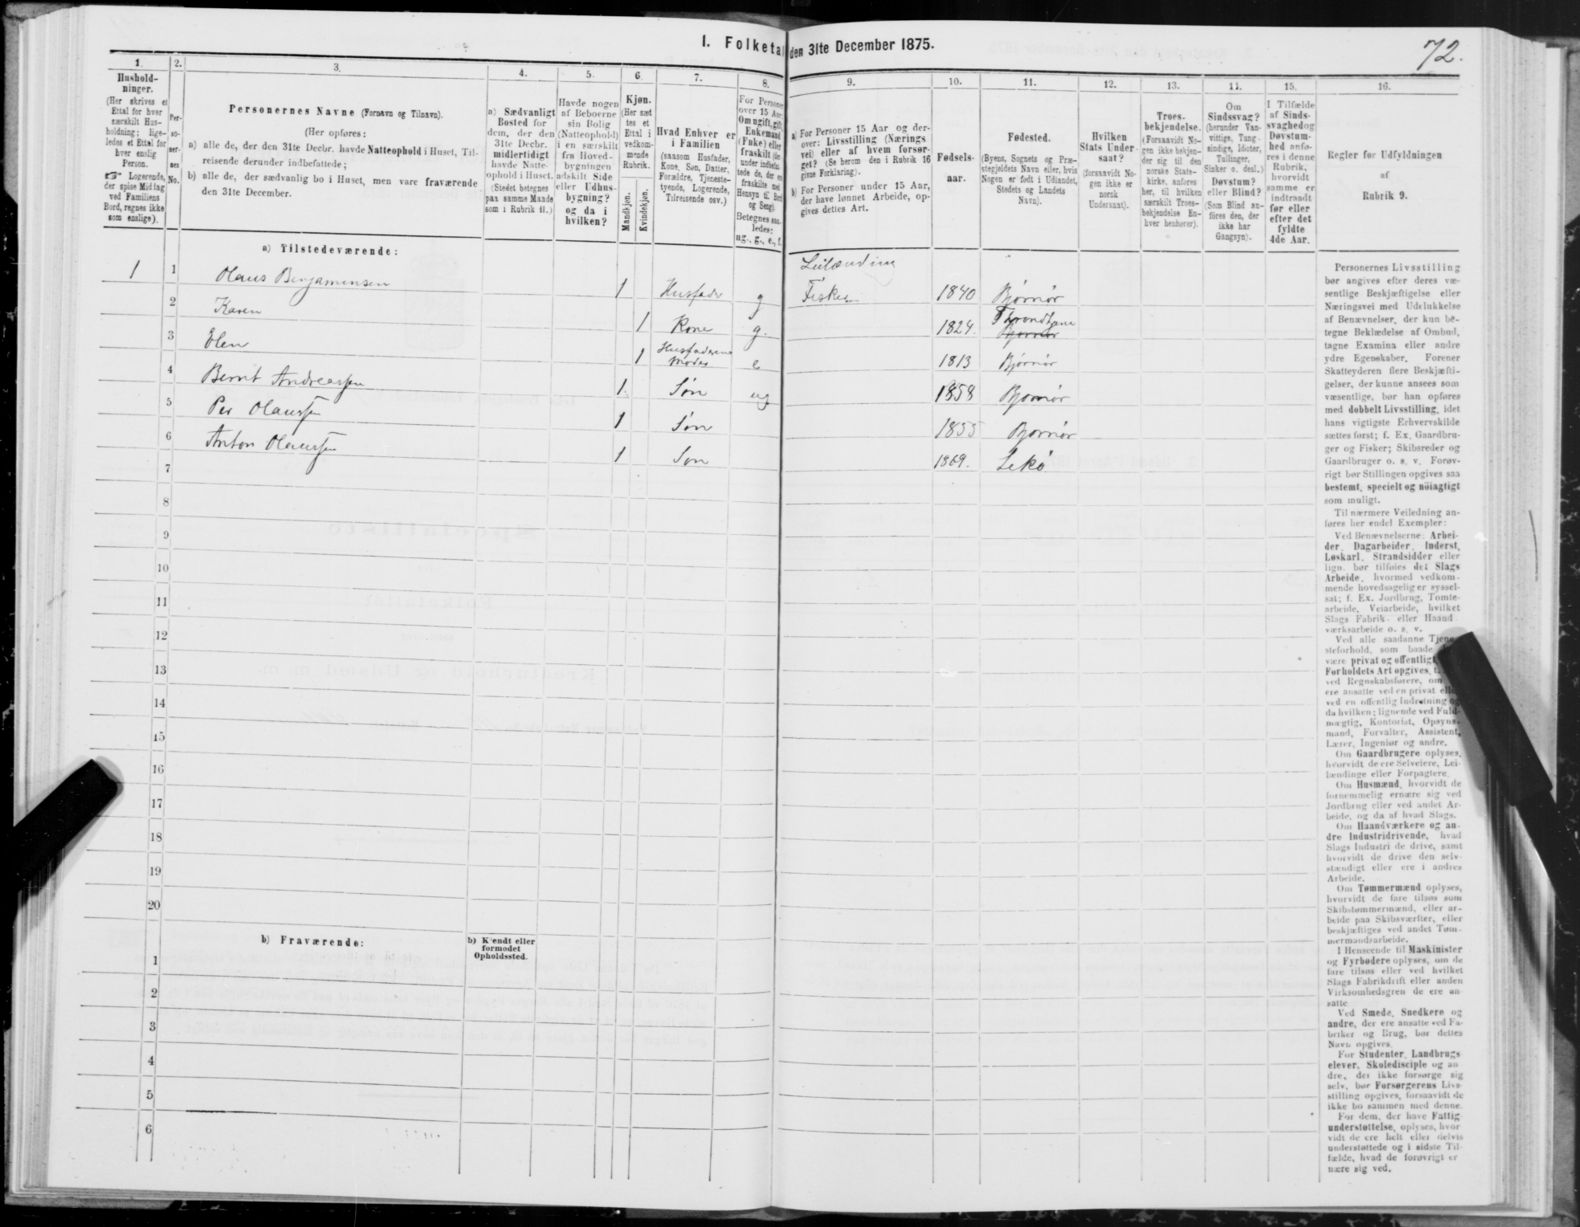 I. Folketal den 31te December 1875.
72.
1.
Hushold-
ninger.
(Her skrives et
Ettal for hver
særskilt Hus-
holdning; lige-
ledes et Ettal for
hver enslig
Person.
☞ Logerende,
der spise Middag
ved Familiens
Bord, regnes ikke
som enslige).
2.
Per-
so-
ner-
nes
No.
3.
Personernes Navne (Fornavn og Tilnavn).
(Her opføres:
a) alle de, der den 31te Decbr. havde Natteophold i Huset, Til-
reisende derunder indbefattede;
b) alle de, der sædvanlig bo i Huset, men vare fraværende
den 31te December.
4.
a) Sædvanligt
Bosted for
dem, der den
31te Decbr.
midlertidigt
havde Natte-
ophold i Huset.
(Stedet betegnes
paa samme Maade
som i Rubrik 11.)
5.
Havde nogen
af Beboerne
sin Bolig
(Natteophold)
i en særskilt
fra Hoved-
bygningen
adskilt Side
eller Udhus-
bygning?
og da i
hvilken?
6.
Kjøn.
(Her sæt
tes et
Ettal i
vedkom-
mende
Rubrik.
Mandkjøn.
Kvindekjøn.
7.
Hvad Enhver er
i Familien
(saasom Husfader,
Kone, Søn, Datter,
Forældre, Tjeneste-
tyende, Logerende,
Tilreisende osv.)
8.
For Personer
over 15 Aar:
Om ugift, gift,
Enkemand
(Enke) eller
fraskilt
Betegnes saa-
ledes:
ug., g., e., f.
9.
a) For Personer 15 Aar og der-
over: Livsstilling (Nærings
vei) eller af hvem forsør-
get? (Se herom den i Rubrik 16
givne Forklaring).
b) For Personer under 15 Aar,
der have lønnet Arbeide, op-
gives dettes Art.
10.
Fødsels-
aar.
11.
Fødested.
(Byens, Sognets og Præ-
stegjeldets Navn eller, hvis
Nogen er født i Udlandet,
Stedets og Landets
Navn).
12.
Hvilken
Stats Under
saat?
(forsaavidt No-
gen ikke er
norsk
Undersaat).
13.
Troes-
bekjendelse.
(Forsaavidt No-
gen ikke bekjen-
der sig til den
norske Stats-
kirke, anføres
her, til hvilken
særskilt Troes-
bekjendelse En-
hver henhører).
14.
Om
Sindssvag?
(herunder Van-
vittige, Tung-
sindige, Idioter,
Tullinger,
Sinker o. desl.)
Døvstum?
eller Blind?
(Som Blind an-
føres den, der
ikke har
Gangsyn).
15.
I Tilfælde
af Sinds-
svaghed og
Døvstum-
hed anfø-
res i denne
Rubrik,
hvorvidt
samme er
indtraadt
før eller
efter det
fyldte
4de Aar.
16.
Regler for Udfyldningen
af
Rubrik 9.
a) Tilstedeværende:
1 1 Olaus Benjaminsen 1 Husfader g Leilænding
Fisker 1840 Bjørnør
2 Karen 1 Kone g. 1824. Throndhjem
Bjørnør
3 Elen 1 Husfaderens
Moder e 1813 Bjørnør
4 Bernt Andreassen 1 Søn ug 1858 Bjørnør
5 Per Olaussen 1 Søn 1855 Bjørnør
6 Anton Olaussen 1 Søn 1869. Lekø
7
8
9
10
11
12
13
14
15
16
17
18
19
20
b) Fraværende:
b) Kjendt eller
formodet
Opholdssted.
1
2
3
4
5
6
Personernes Livsstilling
bør angives efter deres væ-
sentlige Beskjæftigelse eller
Næringsvei med Udelukkelse
af Benævnelser, der kun be-
tegne Beklædelse af Ombud,
tagne Examina eller andre
ydre Egenskaber. Forener
Skatteyderen flere Beskjæfti-
gelser, der kunne ansees som
væsentlige, bør han opføres
med dobbelt Livsstilling, idet
hans vigtigste Erhvervskilde
sættes først; f. Ex. Gaardbru-
ger og Fisker; Skibsreder og
Gaardbruger o. s. v. Forøv-
rigt bør Stillingen opgives saa
bestemt, specielt og nøiagtigt
som muligt.
Til nærmere Veiledning an-
føres her endel Exempler:
Ved Benævnelserne: Arbei-
der, Dagarbeider, Inderst,
Løskarl, Strandsidder eller
lign. bør tilføies det Slags
Arbeide, hvormed vedkom-
mende hovedsagelig er syssel-
sat; f. Ex. Jordbrug, Tomte-
arbeide, Veiarbeide, hvilket
Slags Fabrik- eller Haand
værksarbeide o. s. v.
Ved alle saadanne Tjene-
steforhold, som baade
være privat og offentligt
Forholdets Art opgives,
ved Regnskabsførere, om
ere ansatte ved en privat
ved en offentlig Indretning
da hvilken; lignende ved Fuld-
mægtig, Kontorist, Opsyns-
mand, Forvalter, Assistent,
Lærer, Ingeniør og andre.
Om Gaardbrugere oplyses,
hvorvidt de ere Selveiere, Lei-
lændinge eller Forpagtere.
Om Husmænd, hvorvidt de
fornemmelig ernære sig ved
Jordbrug eller ved andet Ar-
beide, og da af hvad Slags.
Om Haandværkere og an-
dre Industridrivende, hvad
Slags Industri de drive, samt
hvorvidt de drive den selv-
stændigt eller ere i andres
Arbeide.
Om Tømmermænd oplyses,
hvorvidt de fare tilsøs som
Skibstømmermænd, eller ar-
beide paa Skibsværfter, eller
beskjæftiges ved andet Tøm-
mermandsarbeide.
I Henseende til Maskinister
og Fyrbødere oplyses, om de
fare tilsøs eller ved hvilket
Slags Fabrikdrift eller anden
Virksomhedsgren de ere an-
satte.
Ved Smede, Snedkere og
andre, der ere ansatte ved Fa-
briker og Brug, bør dettes
Navn opgives.
For Studenter, Landbrugs
elever, Skoledisciple og an-
dre, der ikke forsørge sig
selv, bør Forsørgerens Livs-
stilling opgives, forsaavidt de
ikke bo sammen med denne.
For dem, der have Fattig-
understøttelse, oplyses, hvor
vidt de ere helt eller delvis
understøttede og i sidste Til-
fælde, hvad de forøvrigt er-
nære sig ved.